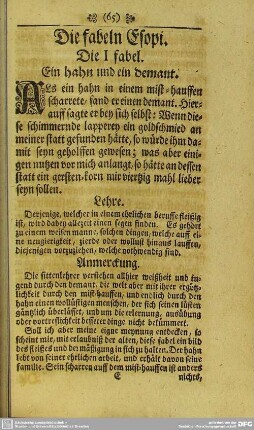 (65)
Die fabeln Esopi.
Die I fabel.
Ein hahn und ein demant.
Als ein hahn in einem mist-hauffen
scharrete, fand er einen demant. Hier-
auff sagte er bey sich selbst: Wenn die-
se schimmernde lapperey ein goldschmied an
meiner statt gefunden hätte, so würde ihm da-
mit seyn geholffen gewesen; was aber eini-
gen nutzen vor mich anlangt, so hätte an dessen
statt ein gersten-korn mir viertzig mahl lieber
seyn sollen.
Lehre.
Derjenige, welcher in einem ehrlichen beruffe fleißig
ist, wird dabey allezeit einen segen finden. Es gehört
zu einem weisen manne, solchen dingen, welche auff ei-
ne neugierigkeit, zierde oder wollust hinaus lauffen,
diejenigen vorzuziehen, welche nothwendig sind.
Anmerckung.
Die sittenlehrer verstehen allhier weißheit und tu-
gend durch den demant, die welt aber mit ihrer ergötz-
lichkeit durch den mist-hauffen, und endlich durch den
hahn einen wollüstigen menschen, der sich seinen lüsten
gäntzlich überläst, und um die erlernung, ausübung
oder vortreflichkeit besserer dinge nicht bekümmert.
Soll ich aber meine eigne meynung entdecken, so
scheint mir, mit erlaubniß der alten, diese fabel ein bild
des fleißes und der mäßigung in sich zu halten. Der hahn
lebt von seiner ehrlichen arbeit, und erhält davon seine
familie. Sein scharren auff dem mist-hauffen ist anders
E nichts,